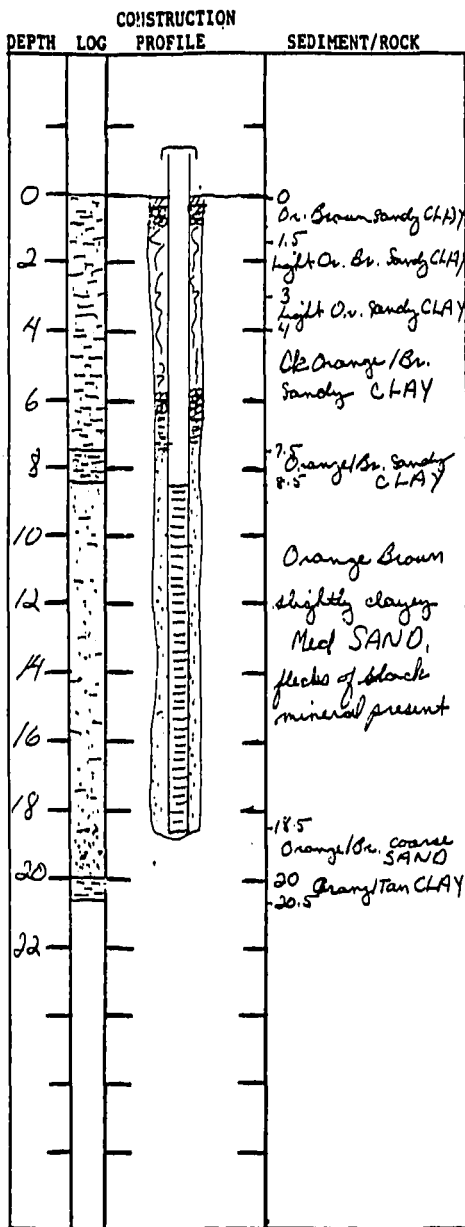 CONSTRUCTION
DEPTH LOG PROFILE SEDIMENT/ROCK
0
2
4
6
8
10
12
14
16
18
20
22
0
Or. Brown Sandy CLAY
1.5
Light Or. Br. Sandy CLAY
3
Light Or. Sandy CLAY
4
Orange/Br.
Sandy CLAY
7.5
Orange/Br. Sandy
8.5 CLAY
Orange Brown
slightly clayey
Med SAND,
flecks of black
mineral present
18.5
Orange/Br. coarse
SAND
20 Orang/Tan CLAY
20.5